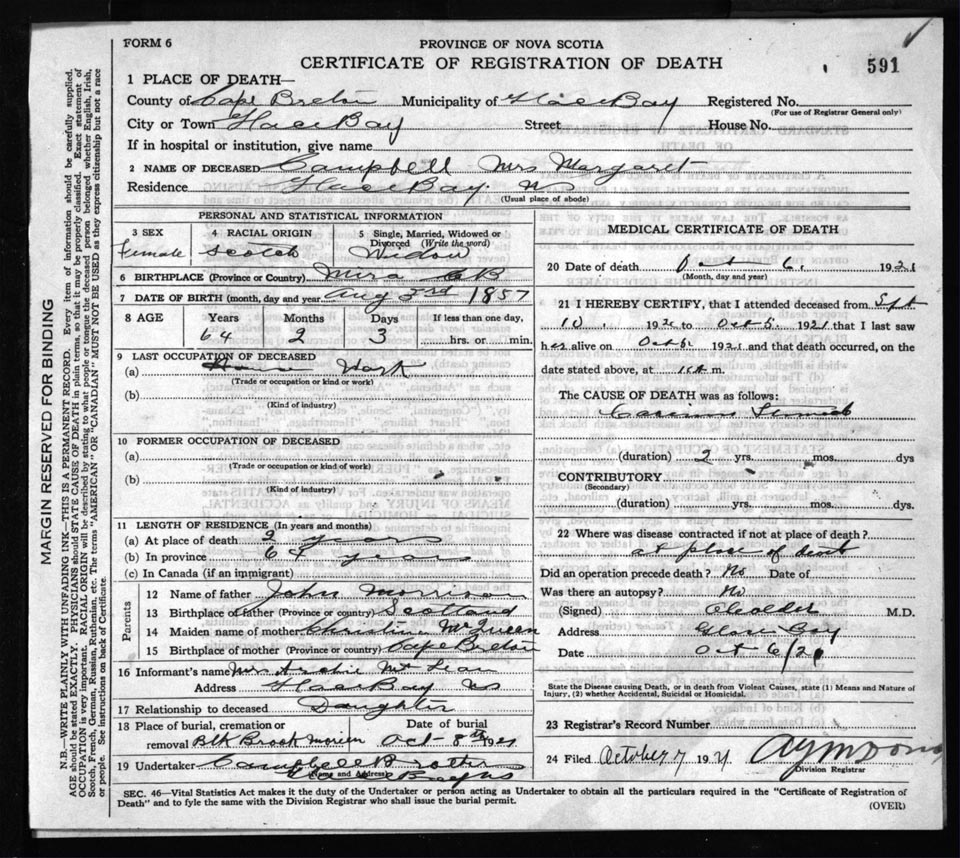 FORM 6
PROVINCE OF NOVA SCOTIA
CERTIFICATE OF REGISTRATION OF DEATH
591
1 PLACE OF DEATH—
County of Cape Breton Municipality of Glace Bay Registered No.
(For use of Registrar General only)
City or Town Glace Bay Street House No.
If in hospital or institution, give name
2 NAME OF DECEASED Campbell Mrs Margaret
Residence Glace Bay. NS
(Usual place of abode)
PERSONAL AND STATISTICAL INFORMATION
3 SEX 4 RACIAL ORIGIN 5 Single, Married, Widowed or Divorced (Write the word)
Female Scotch Widow
6 BIRTHPLACE (Province or Country) Mira CB
7 DATE OF BIRTH (month, day and year Aug 3rd 1857
8 AGE Years Months Days If less than one day,
64 2 3 hrs. or min.
9 LAST OCCUPATION OF DECEASED
(a) House Work
(Trade or occupation or kind or work)
(b)
(Kind of industry)
10 FORMER OCCUPATION OF DECEASED
(a)
(Trade or occupation or kind or work)
(b)
(Kind of industry)
11 LENGTH OF RESIDENCE (In years and months)
(a) At place of death 2 years
(b) In province 64 years
(c) In Canada (if an immigrant)
Parents
12 Name of father John Morrison
13 Birthplace of father (Province or country) Scotland
14 Maiden name of mother Christina McQueen
15 Birthplace of mother (Province or country) Cape Breton
16 Informant's name Mrs Archie McLean
Address Glace Bay NS
17 Relationship to deceased Daughter
18 Place of burial, cremation or removal Blk Brook Morien Date of burial Oct 8th 1921
19 Undertaker Campbell Brothers
(Name and Address)
Glace Bay NS
MEDICAL CERTIFICATE OF DEATH
20 Date of death Oct 6, 1921
(Month, day and year)
21 I HEREBY CERTIFY, that I attended deceased from Sept
10, 192 to Oct 5, 1921 that I last saw
her alive on Oct 5, 1921 and that death occurred, on the
date stated above, at m.
The CAUSE OF DEATH was as follows:
(duration) 2 yrs. mos. dys
CONTRIBUTORY
(Secondary)
(duration) yrs. mos. dys.
22 Where was disease contracted if not at place of death?
at place of death
Did an operation precede death? No Date of
Was there an autopsy? No
(Signed) M.D.
Address Glace Bay
Date Oct 6/21
State the Disease causing Death, or in death from Violent Causes, state (1) Means and Nature of
Injury, (2) whether Accidental, Suicidal or Homicidal.
23 Registrar's Record Number
24 Filed October 7 1921
Division Registrar
SEC. 46—Vital Statistics Act makes it the duty of the Undertaker or person acting as Undertaker to obtain all the particulars required in the "Certificate of Registration of
Death" and to fyle the same with the Division Registrar who shall issue the burial permit.
(OVER)
MARGIN RESERVED FOR BINDING
N.B.—WRITE PLAINLY WITH UNFADING INK—THIS IS A PERMANENT RECORD. Every item of information should be carefully supplied.
AGE should be stated EXACTLY. PHYSICIANS should STATE CAUSE OF DEATH in plain terms, so that it may be properly classified. Exact statement of
OCCUPATION is very important. RACIAL ORIGIN will be described by stating to what people or tongue the deceased person belonged whether English, Irish,
Scotch, French, German, Russian, Ruthenian, etc. The terms "AMERICAN" OR "CANADIAN" MUST NOT BE USED as they express citizenship but not a race
or people. See instructions on back of Certificate.